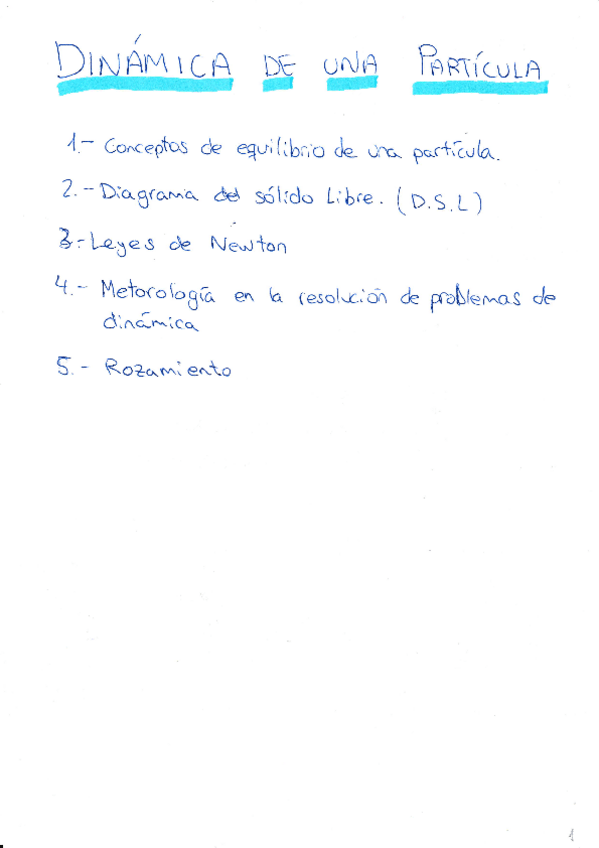 DINÁMICA DE UNA PARTÍCULA
1.- Conceptos de equilibrio de una partícula.
2.- Diagrama del sólido Libre. (D.S.L)
3.- Leyes de Newton
4.- Metorología en la resolución de problemas de
dinámica
5.- Rozamiento
1